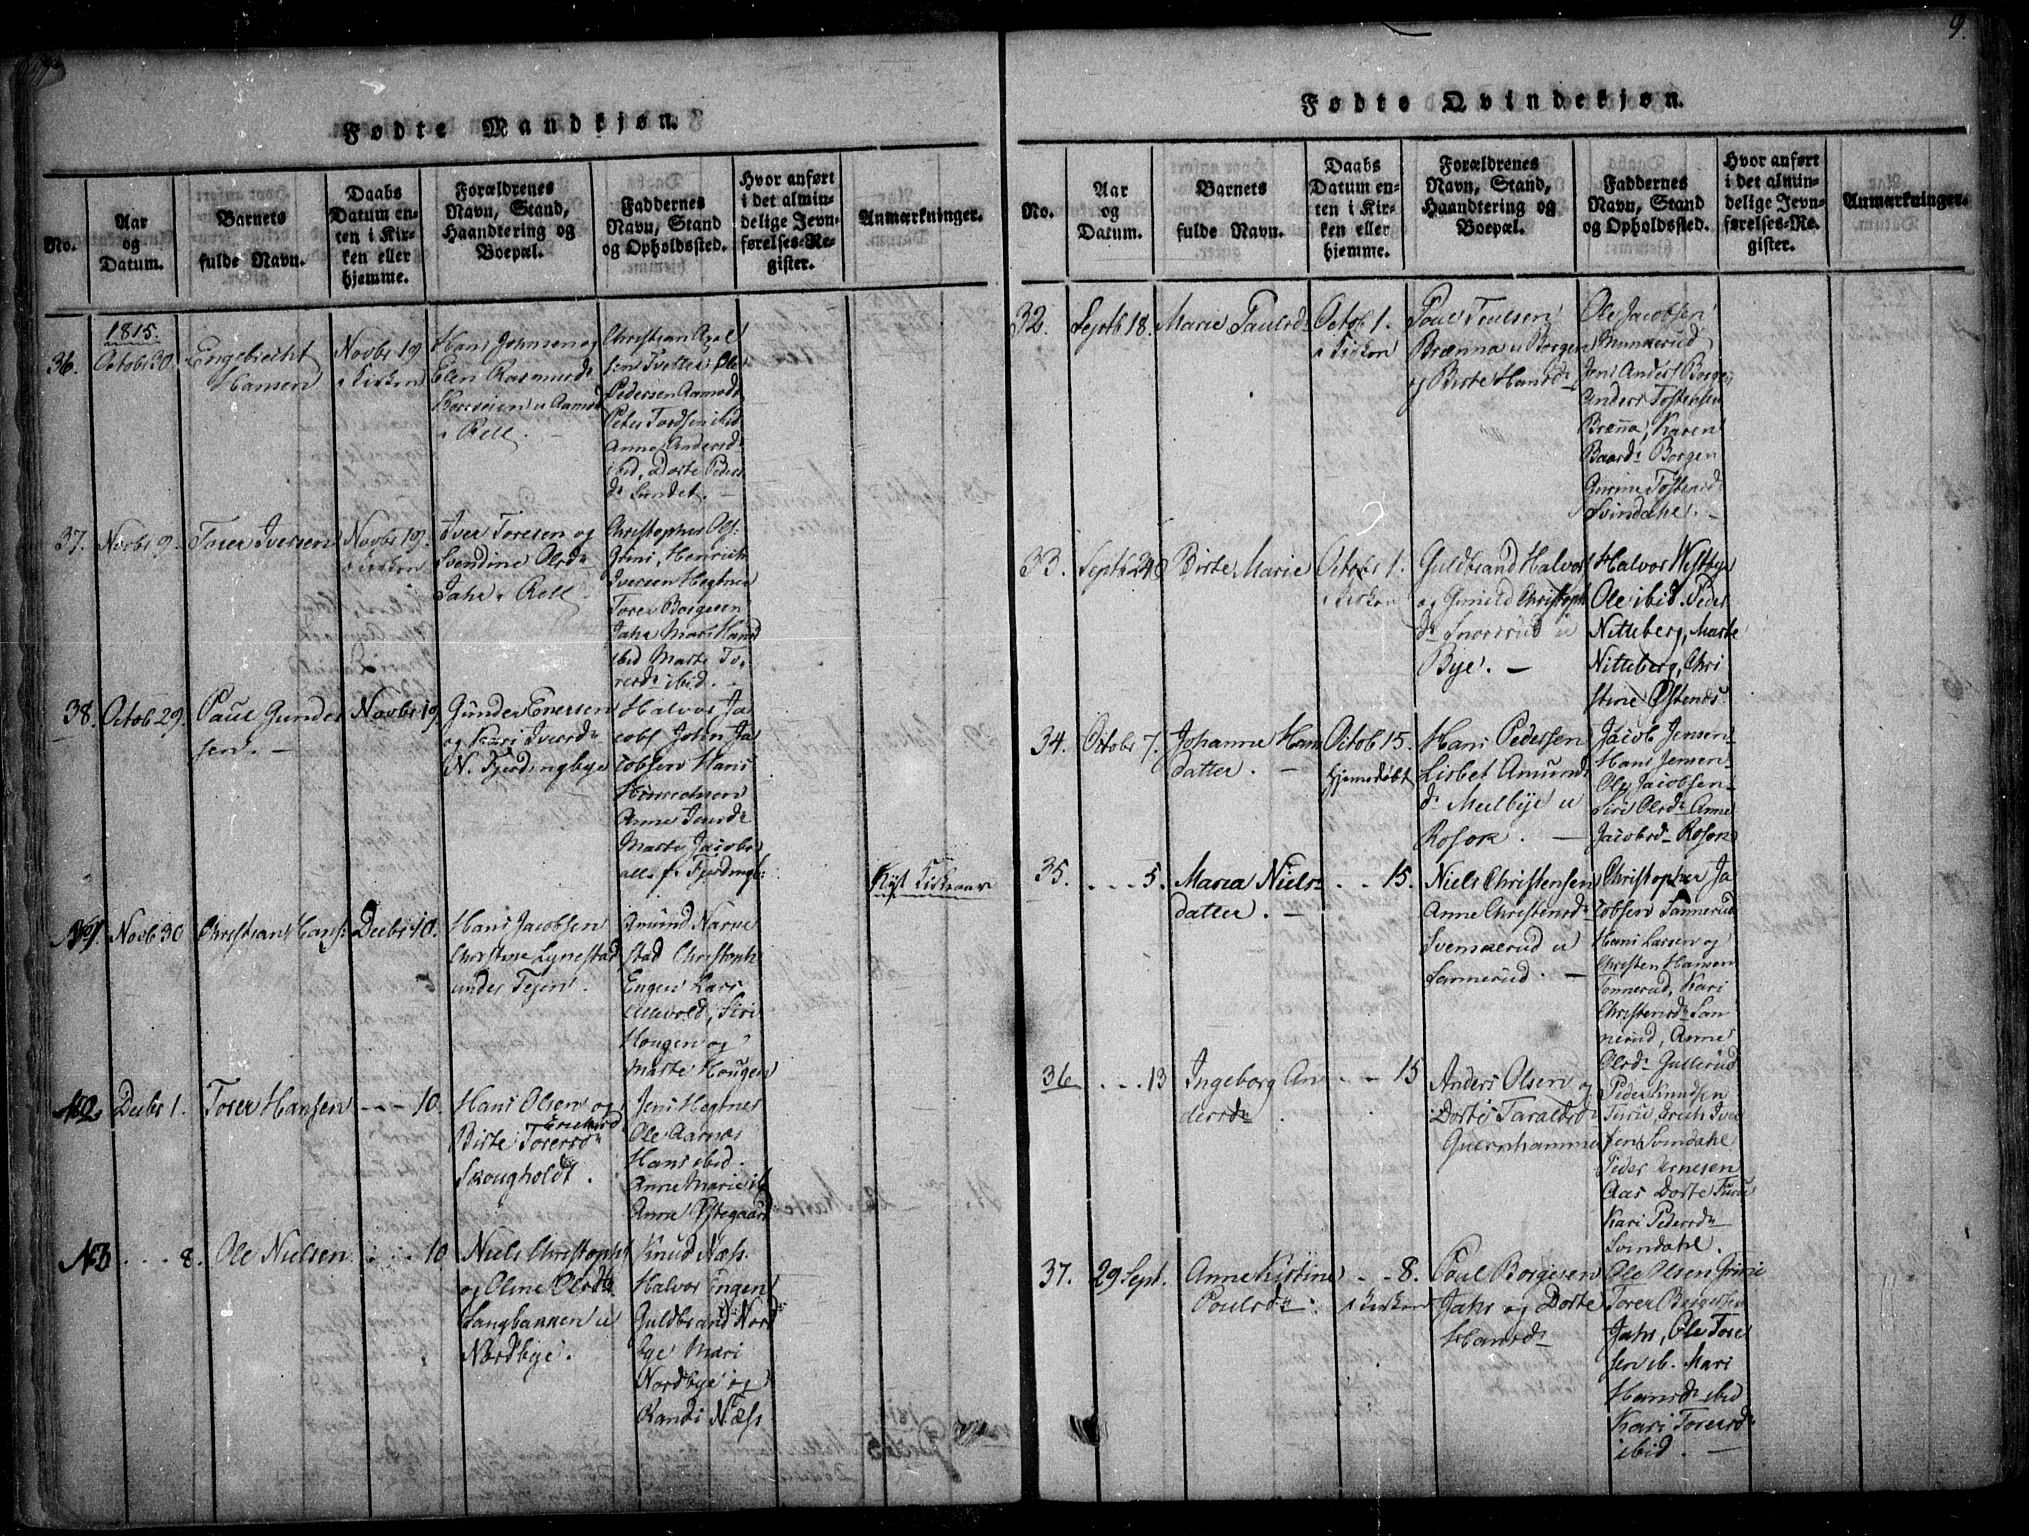 9.
Fødte Mandkjøn.
No.
Aar
og
Datum.
Barnets
fulde Navn.
Daabs
Datum en-
ten i Kir-
ken eller
hjemme.
Forældrenes
Navn, Stand,
Haandtering og
Boepæl.
Faddernes
Navn, Stand
og Opholdssted.
Hvor anført
i det almin-
delige Jevn-
førelses-Re-
gister.
Anmærkninger.
1815.
36.
Octob 30.
Engebrecht
Hansen
Novbr 19.
i Kirken
Hans Johnsen og
Elen Rasmusd
u Aamod
i Rell.
Christian Axel
sen Tvetter Ole
Pedersen Aamodt
Peter Tordsen ibid
Anne Andersd
ibid, Dorte Peders
dr Sundet. -
37.
Novbr 9.
Torer Iversen
Novbr 19.
i Kirken
Iver Toresen og
Svendine Olsdr
Jahr i Rell
Christopher Ols
Henrich
Iversen Hegtner
Torer Borgesen
Jahr Mari Hansd
ibid Marte To,
rersdr ibid.
38.
Octob 29.
Paul Gunder
sen. -
Novbr 19
Gunder Enersen
og Kari Iversdr
N. Fjerdingbye
Halvor Ja
cobs John Ja
cobsen Hans
Anne Iversdr
Marte Jacobs
alle f. Fjerdingb:
Ryst Kirkeaar
No 1
Novb 30
Christian Hans:
Decbr 10.
Hans Jacobsen
Christine Lynestad
under Tejen.
Amund Narve
stad Christoph
Engen Lars
Siri
Hougen og
Marte Hougen
No 2.
Decbr 1.
Torer Hansen
- - - 10.
Hans Olsen og
Birte Torersdr
Skougholdt.
Jens Hegtner
Ole Aarnæs
Hans ibid.
Anne Marie ib
Anne Østegaard
No 3
- - - 8.
Ole Nielsen
- - - 10
Niels Christophs
og Oline Olsdtr
Langbakken u
Nordbye.
Knud Næss.
Halvor Engen
Guldbrand Nord
bye Mari
Nordbye og
Randi Næss
Fødte Qvindekjøn.
No.
Aar
og
Datum.
Barnets
fulde Navn.
Daabs
Datum en-
ten i Kir-
ken eller
hjemme.
Forældrenes
Navn, Stand,
Haandtering og
Boepæl.
Faddernes
Navn, Stand
og Opholdssted.
Hvor anført
i det almin-
delige Jevn-
førelses-Re-
gister.
Anmærkninger.
32.
Septb 18.
Marie Paulsd
Octob 1.
i Kirken
Poul Poulsen
Brænna u Borgen
og Birte Hansdr
Ole Jacobsen
Munkerud
Jens Anders Borgen
Anders Tostensen
Brænna, Karen
Baardr Borgen
Gurine Tostensdr
Svindahl. -
33.
Septb 24
Birte Marie
Octobr 1.
i Kirken
Guldbrand Halvors
og Gunild Christoph
dr Snorrud u
Bye. -
Halvor Westbye
Ole ibid. Peder
Nitteberg, Marte
Nitteberg, Chri
stine Østends
34.
Octobr 7.
Johanne Hans
datter. -
Octob 15.
hjemedøbt
Hans Pedersen
Lisbet Amunds
dr Melbye u
Rosok. -
Jacob Jensen
Hans Jensen
Ole Jacobsen
Siri Olsdr Anne
Jacobsdr Rosok
35.
- - - 5.
Maria Niels
datter. -
- - 15.
Niels Christensen
Anne Christensdr
Svenskerud u
Sannerud. -
Christopher Ja
cobsen Sannerud
Hans Larsen og
Christen Hansen
Sonnerud, Kari
Christensdr San
nerud, Anne
Olsdr Gullerud
36
- - - 13
Ingeborg An
dersdr
- - 15
Anders Olsen og
Dorte Taraldsd
Quernhammer
Peder Knudsen
Turie, Erich Iver
sen Svindahl
Peder Arnesen
Aas Dorte Turie
Kari Pedersdr
Svindahl.
37.
29 Sept.
Anne Kistine
Poulsdr.
- - 8.
i Kirken
Poul Borgesen
Jahr og Dorte
Hansdr
Ole Olsen Grinie
Torer Borgersen
Jahr, Ole Tore
sen ib. Mari
Hansdr ibid
Kari Torersdr
ibid. -